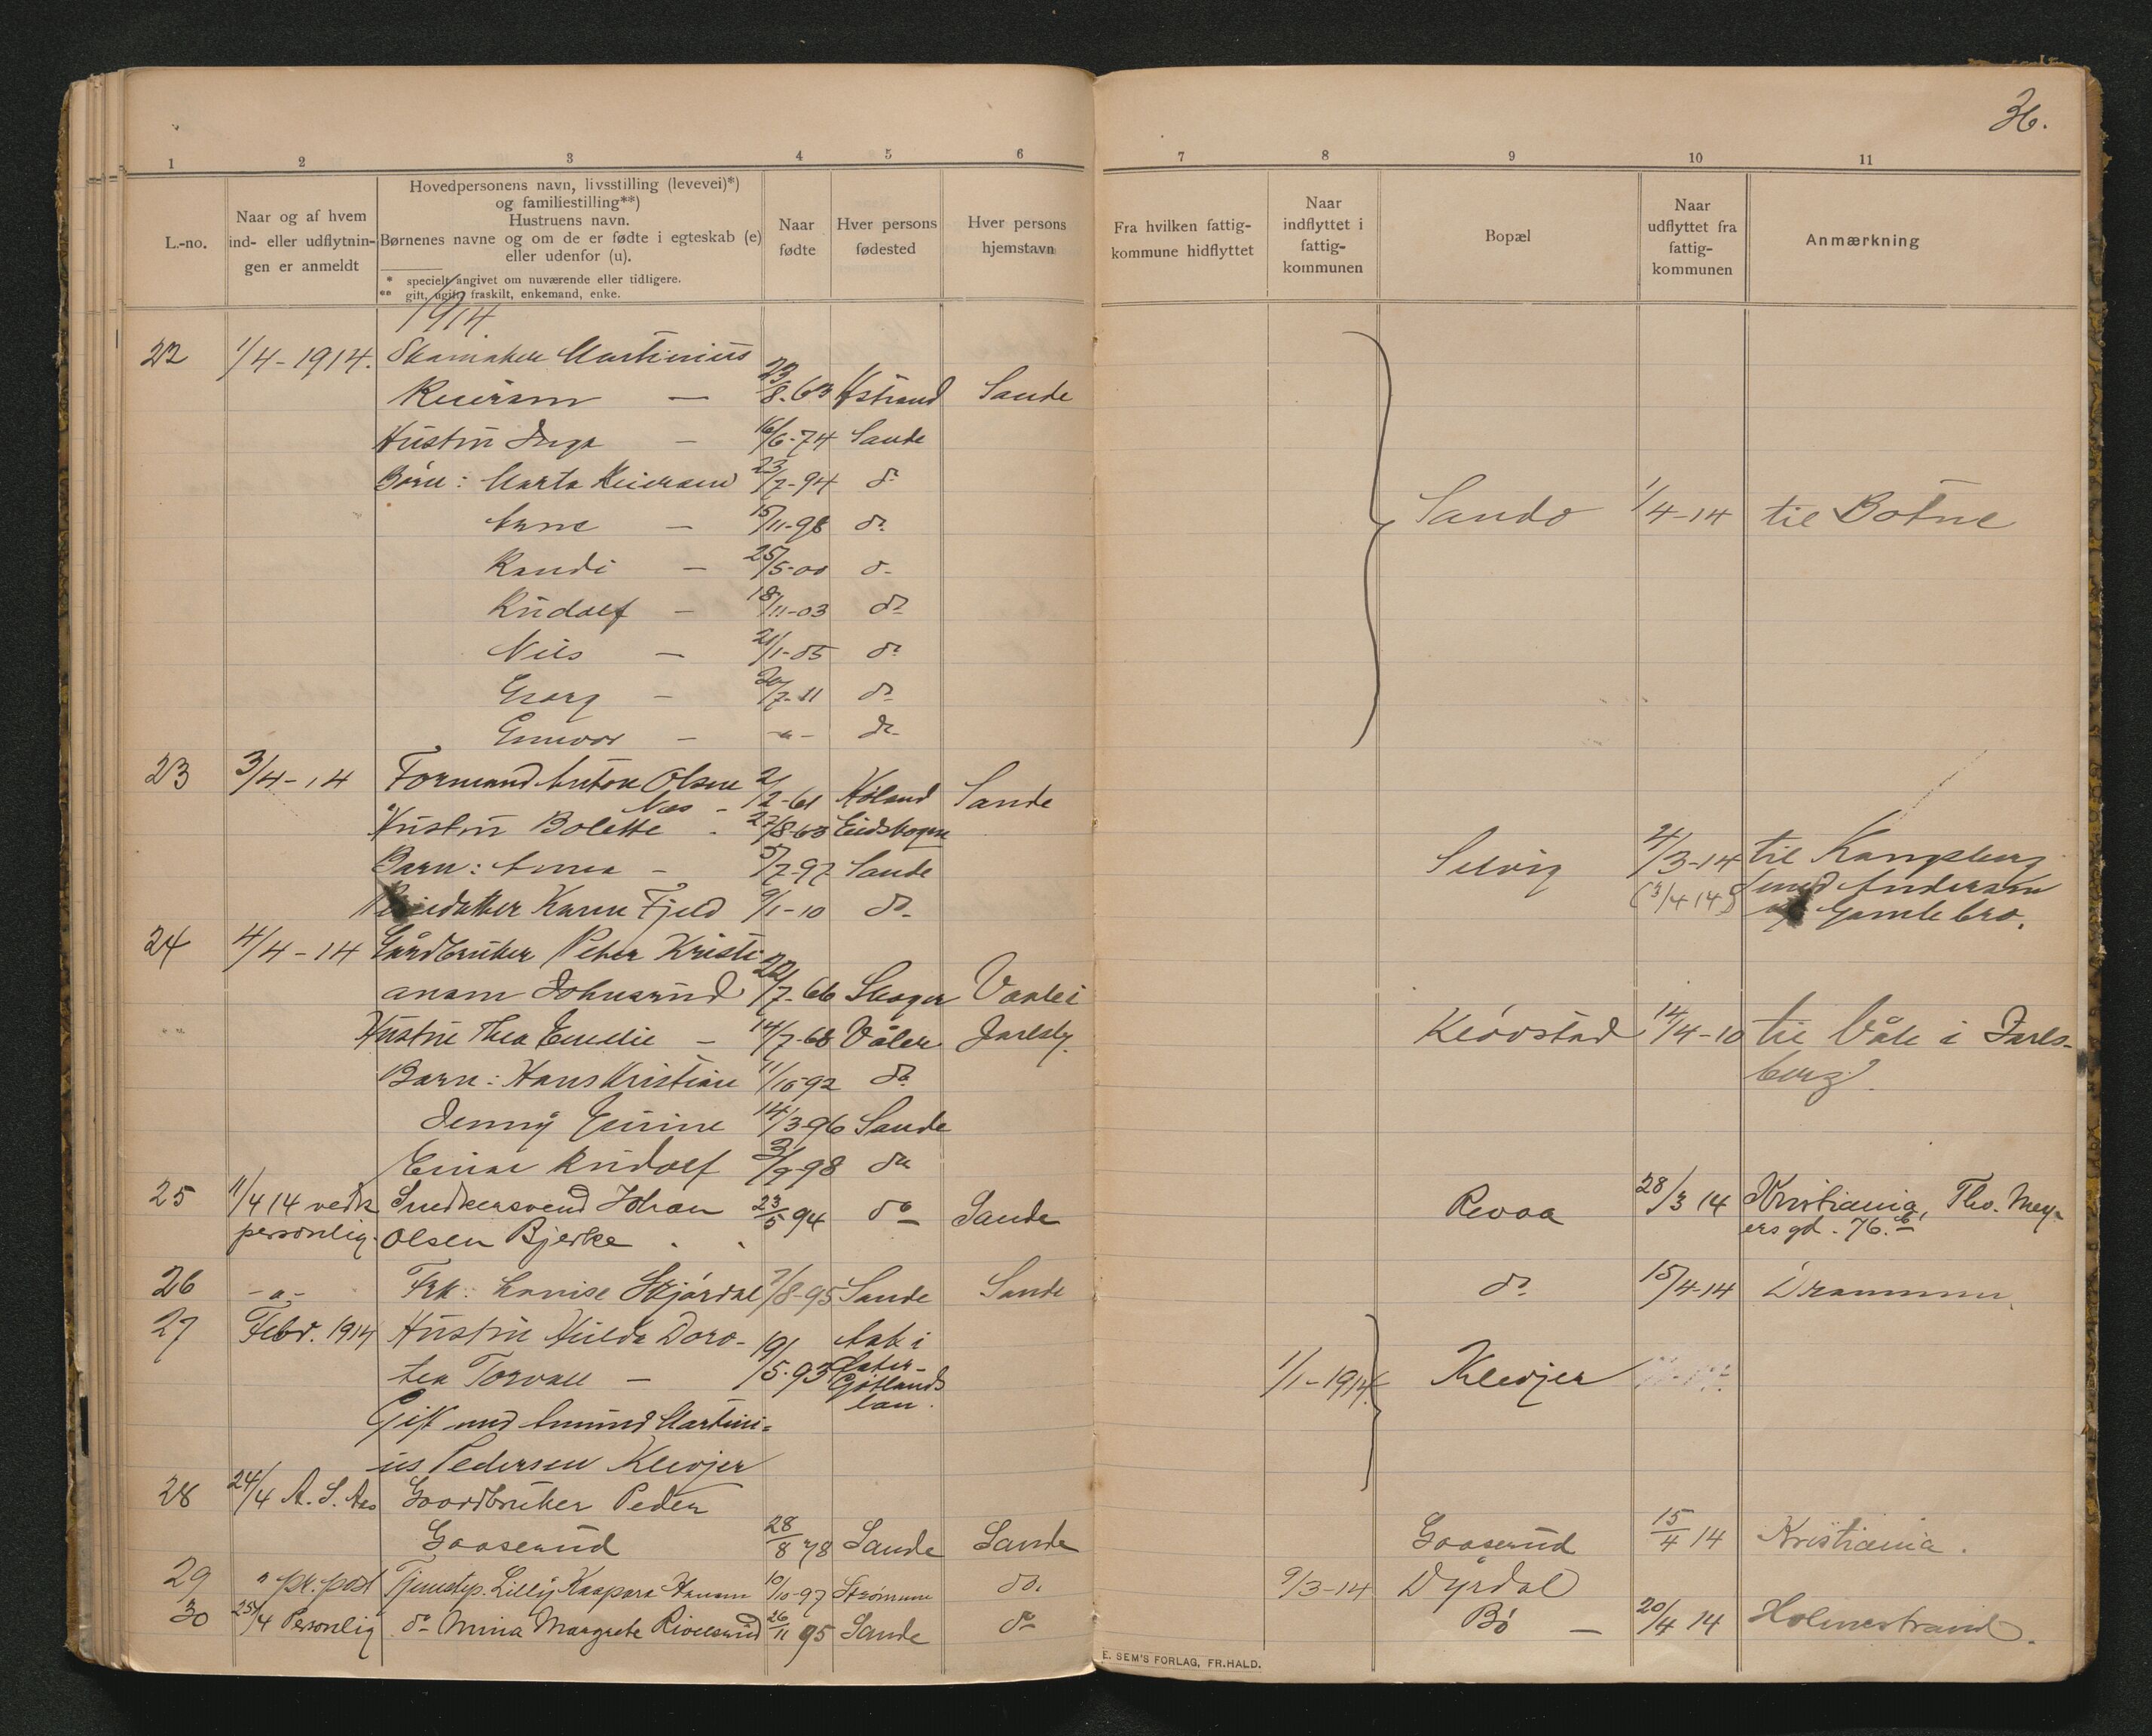 36.
1 2 3 4 5 6 7 8 9 10 11
L.-no.
Naar og af hvem
ind- eller udflytnin-
gen er anmeldt
Hovedpersonens navn, livsstilling (levevei)*)
og familiestilling**)
Hustruens navn.
Børnenes navne og om de er fødte i egteskab (e)
eller udenfor (u).
* specielt angivet om nuværende eller tidligere.
** gift, ugift, fraskilt, enkemand, enke.
Naar
fødte
Hver persons
fødested
Hver persons
hjemstavn
Fra hvilken fattig-
kommune hidflyttet
Naar
indflyttet i
fattig-
kommunen
Bopæl
Naar
udflyttet fra
fattig-
kommunen
Anmærkning
1914.
22 1/4-1914. Skomaker Martinius
Reiersen — 23/8-63 Hstrand Sande
Hustru Inga — 16/6-74 Sande
Børn: Marta Reiersen 23/7-94 do
Arne — 15/11-98 do Sande 1/4-14 til Botne
Randi — 25/5-00 do
Rudolf — 18/11-03 do
Nils — 21/1-05 do
Georg — 20/7-11 do
Gunvor — -"- do
23 3/4-14 Formand Anton Olsen 2/2-61 Høland Sande
Næs -
Hustru Bolette - 27/8-63 Eidskogen
Barn: Anna - 5/7-97 Sande Selvig 4/3-14 til Kongsberg
Pleiedatter Karen Fjeld 9/1-10 do (3/4 14) Gamlebro.
24 4/4-14 Gårdbruker Peter Kristi-
ansen Johnsrud 22/7-66 Skoger Vaale i
Hustru Thea Emelie — 14/7-68 Våler Jarlsbg. Kløvstad 14/4-10 til Våle i Jarls-
berg.
Barn: Hans Kristian 11/10-92 do
Jenny Gurine 14/3-96 Sande
Einar Rudolf 3/9-98 do
25 11/4 14 vedk. personlig. Snedkersvend Johan 23/5 94 do Sande Revaa 28/3 14 Kristiania, Tho. Mey-
Olsen Bjerke ersgd. 76.
26 -"- Frk: Louise Skjørdal 7/8-95 Sande Sande do 15/4-14 Drammen.
27 Febr. 1914 Hustru Hulda Doro-
tea Torvall — 19/5-93 1/1-1914 Klevjer
Gift med Amund Martini-
us Pedersen Klevjer
28 24/4 A. S. Aas Gaardbruker Peder
Gaaserud 28/8 78 Sande Sande Gaaserud 15/4 14 Kristiania.
29 " pr. post Tjenestep. Lilly Kaspara Hansen 10/10-97 Strømm do. 9/3-14 Dyrdal
30 25/4 Personlig do Minna Margrete 26/11 95 Sande do Bø — 20/4 14 Holmestrand.
E. SEM'S FORLAG, FR.HALD.